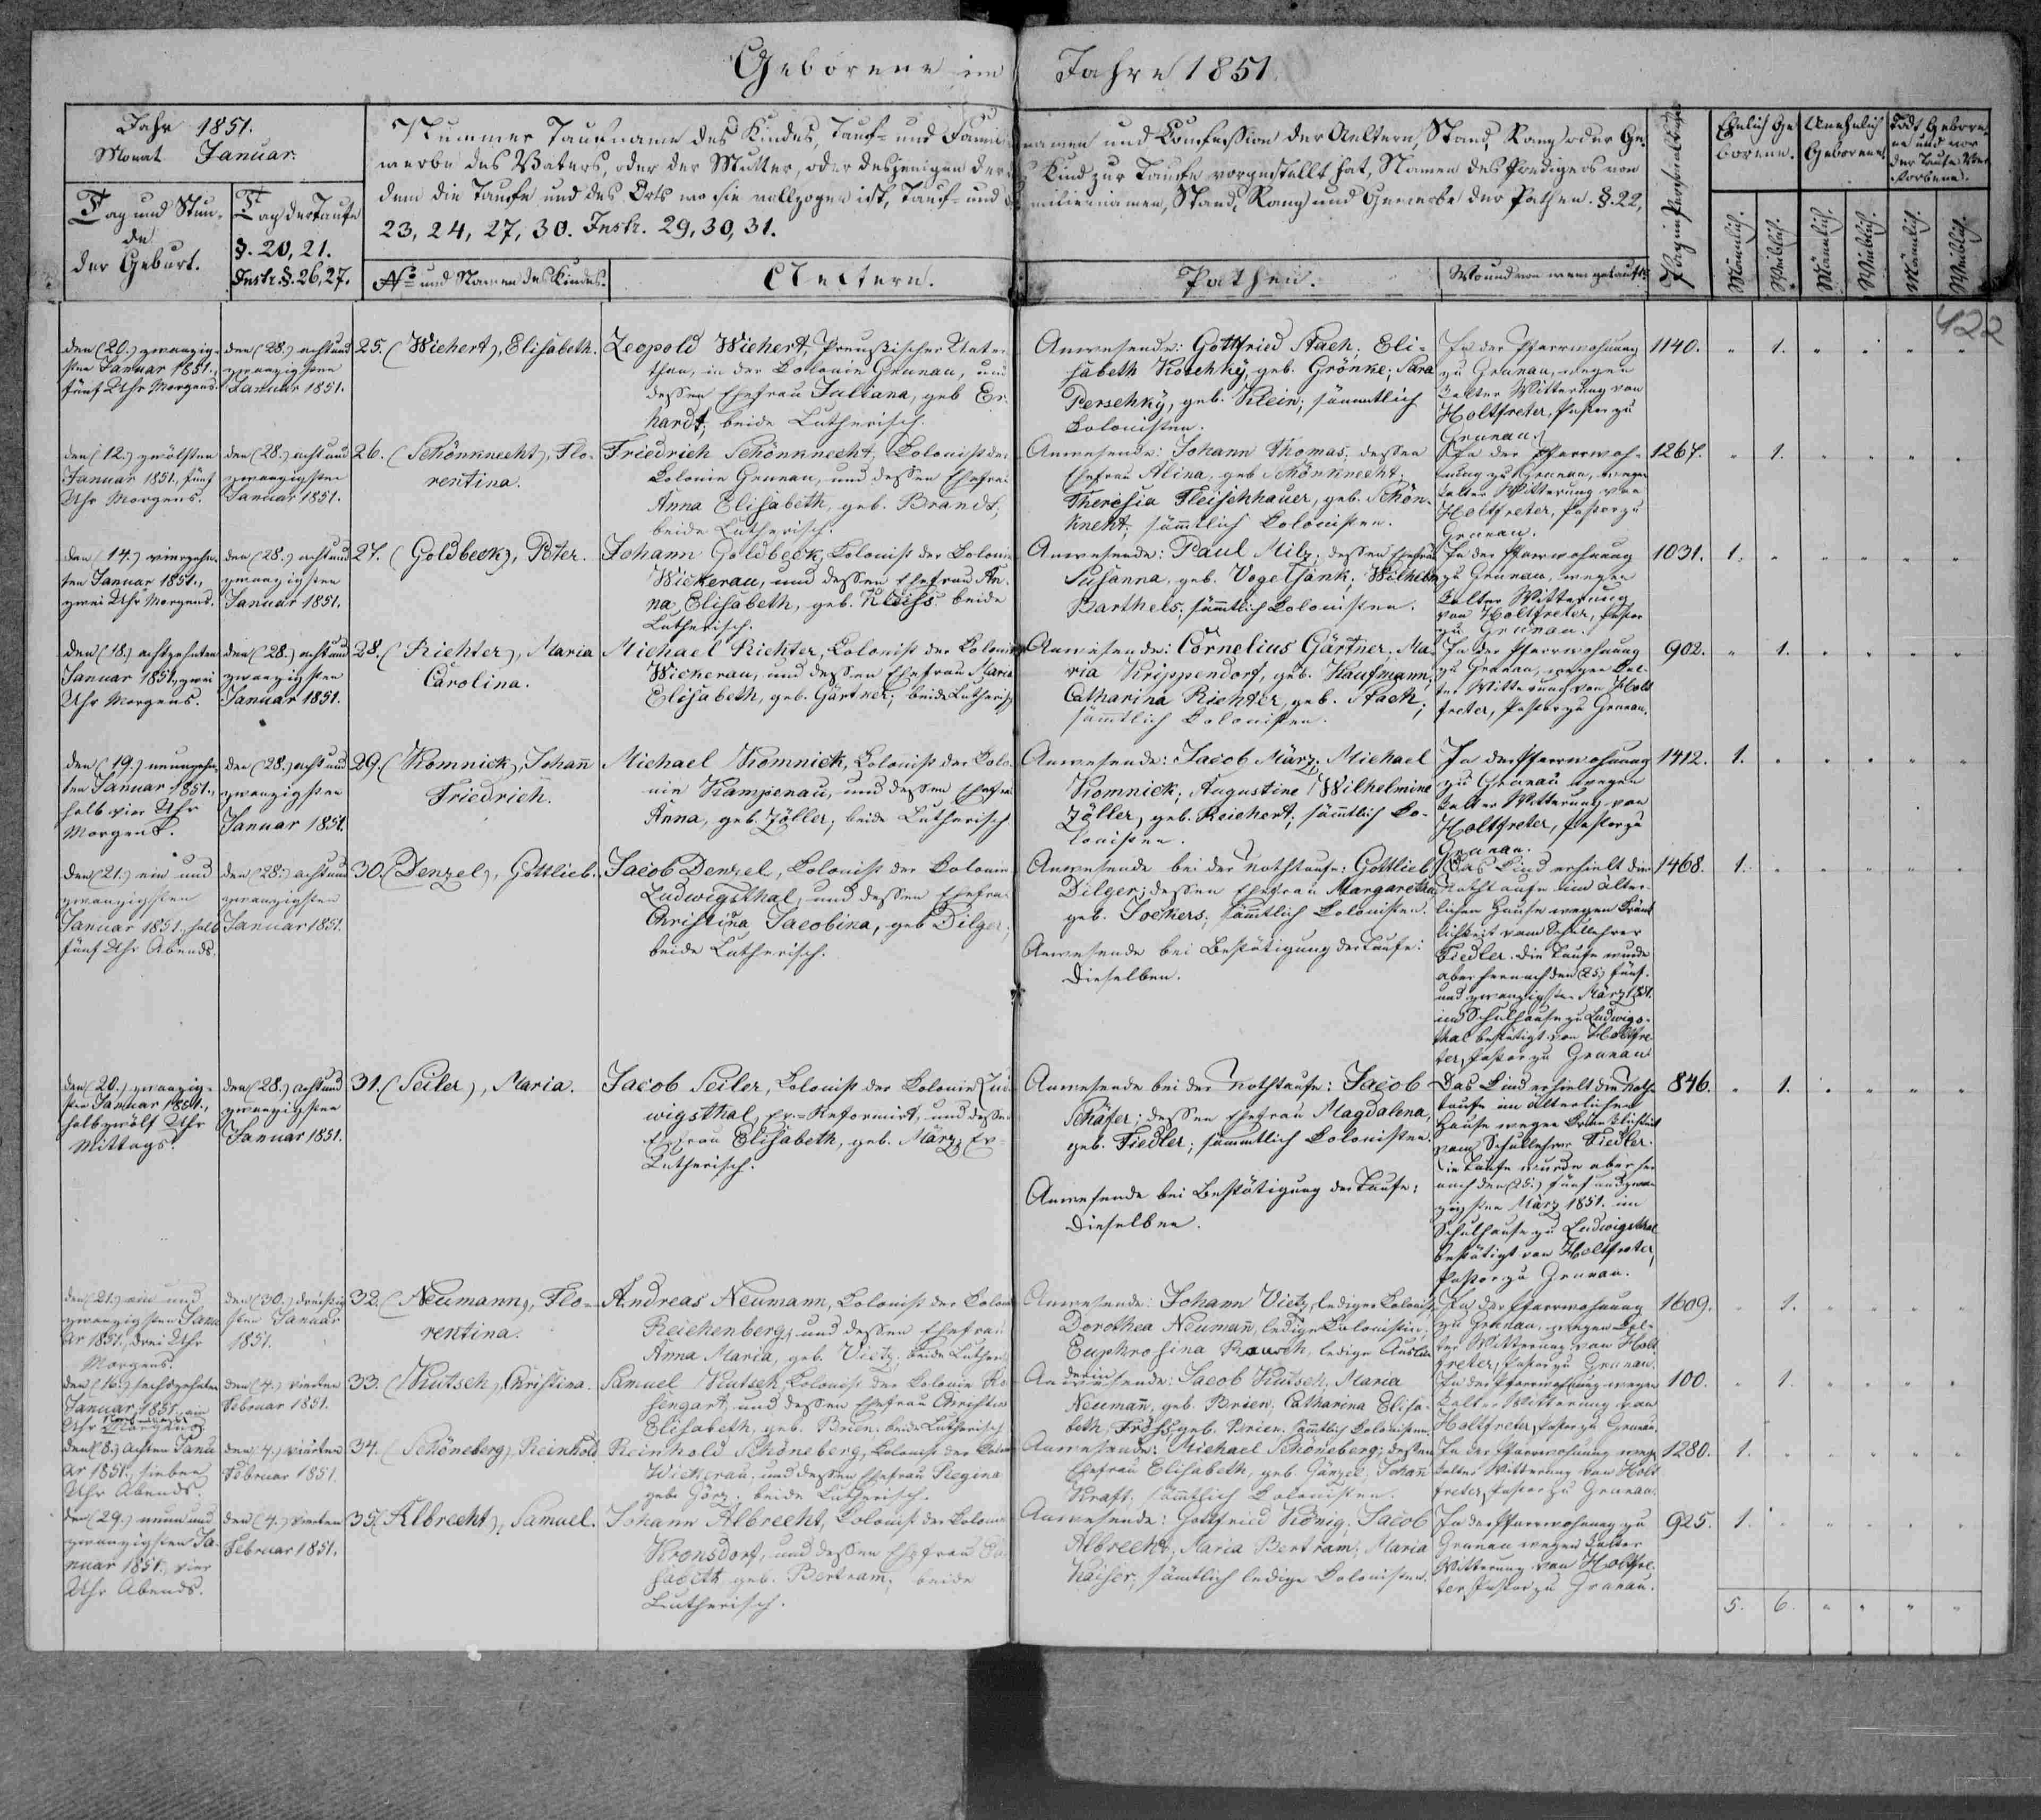 Geborene im Jahre 1851.
Jahr 1851.
Monat Januar.
Tag und Stun-
de
der Geburt.
Tag der Taufe
§. 20, 21.
Instr. §. 26, 27.
Nummer Taufname des Kindes, Tauf- und Famili
namen und Confession der Aeltern, Stand, Rang oder Ge-
werbe des Vaters, oder der Mutter, oder desjenigen der
Kind zur Taufe vorgestellt hat, Namen des Predigers von
dem die Taufe und des Orts wo sie vollzogen ist, Tauf- und
miliennamen, Stand, Rang und Gewerbe der Pathen. §. 22,
23, 24, 27, 30. Instr. 29, 30, 31.
No und Namen des Kindes.
Aeltern.
Pathen.
Wo und von wem getauft.
Ehelich Ge-
borene.
Unehelich
Geborene.
Todt Gebore-
ne und vor
der Taufe Ver-
storbene.
Männlich.
Weiblich.
Männlich.
Weiblich.
Männlich.
Weiblich.
422
den (20.) zwanzig-
sten Januar 1851.,
fünf Uhr Morgens.
den (28.) acht und
zwanzigsten
Januar 1851.
25. (Wiehert), Elisabeth.
Leopold Wiehert, Preußischer Unter-
than, in der Colonie Grunau, und
dessen Ehefrau Juliana, geb. Er-
hardt; beide Lutherisch.
Anwesende: Gottfried Stach; Eli-
sabeth Koschky, geb. Grönke; Sara
Perschky, geb. Klein; sämmtlich
Colonisten.
In der Pfarrwohnung
zu Grunau, wegen
kalter Witterung von
Holtfreter, Pastor zu
Grunau.
1140. " 1. " " " "
den (12.) zwölften
Januar 1851., fünf
Uhr Morgens.
den (28.) acht und
zwanzigsten
Januar 1851.
26. (Schönknecht), Flo-
rentina.
Friedrich Schönknecht, Colonist der
Colonie Grunau, und dessen Ehefrau
Anna Elisabeth, geb. Brandt;
beide Lutherisch.
Anwesende: Johann Thomas; dessen
Ehefrau Alina, geb. Schönknecht;
Theresia Fleischhauer, geb. Schön-
kneht; sämtlich Colonisten.
In der Pfarrwoh-
nung zu Grunau, wegen
kalter Witterung von
Holtfreter, Pastor zu
Grunau.
1267. " 1. " " " "
den (14.) vierzehn-
ten Januar 1851.,
zwei Uhr Morgens.
den (28.) acht und
zwanzigsten
Januar 1851.
27. (Goldbeck), Peter.
Johann Goldbeck, Colonist der Colonie
Wickerau, und dessen Ehefrau An-
na Elisabeth, geb. beide
Lutherisch.
Anwesende: Paul Milz; dessen Ehefrau
Susanna, geb. Wilhelm
Barthels; sämtlich Colonisten.
In der Pfarrwohnung
zu Grunau, wegen
kalter Witterung
von Holtfreter, Pastor
zu Grunau.
1031. 1. " " " " "
den (18.) achtzehnten
Januar 1851., zwei
Uhr Morgens.
den (28.) acht und
zwanzigsten
Januar 1851.
28. (Richter), Maria
Carolina.
Michael Richter, Colonist der Colonie
Wickerau, und dessen Ehefrau Maria
Elisabeth, geb. Gärtner; beide Lutherisch
Anwesende: Cornelius Gärtner; Ma-
ria Krippendorf, geb. Kaufmann;
Catharina Richter, geb. Stach;
sämtlich Colonisten.
In der Pfarrwohnung
zu Grunau, wegen kal-
ter Witterung von Holt
freter, Pastor zu Grunau.
902. " 1. " " " "
den (19.) neunzehn-
ten Januar 1851.,
halb vier Uhr
Morgens.
den (28.) acht und
zwanzigsten
Januar 1851.
29. (Komnick), Johann
Friedrich.
Michael Komnick, Colonist der Colo-
nie Kampenau, und dessen Ehefrau
Anna, geb. Zöller; beide Lutherisch.
Anwesende: Jacob März; Michael
Komnick; Augustine Wilhelmine
Zöller, geb. Reichert; sämtlich Co-
lonisten.
In der Pfarrwohnung
zu Grunau wegen
kalter Witterung von
Holtfreter, Pastor zu
Grunau.
1412. 1. " " " " "
den (21.) ein und
zwanzigsten
Januar 1851., halb
fünf Uhr Abends.
den (28.) acht und
zwanzigsten
Januar 1851.
30. (Denzel), Gottlieb.
Jacob Denzel, Colonist der Colonie
Ludwigsthal, und dessen Ehefrau
Christina Jacobina, geb. Dilger;
beide Lutherisch.
Anwesende bei der Nothtaufe: Gottlieb
Dilger; dessen Ehefrau Margaretha,
geb. Jockers; sämtlich Colonisten.
Anwesende bei Bestätigung der Taufe:
Dieselben.
Das Kind erhielt die
Nothtaufe im älter-
lichen Hause wegen Kränk
lichkeit vom Schullehrer
Fiedler. Die Taufe wurde
aber hernach den (25.) fünf-
und zwanzigsten März 1851.
im Schulhause zu Ludwigs-
thal bestätigt von Holtfre-
ter, Pastor zu Grunau
1468. 1. " " " " "
den (20.) zwanzig-
sten Januar 1851.,
halb zwölf Uhr
Mittags.
den (28.) acht und
zwanzigsten
Januar 1851.
31. (Seiler), Maria.
Jacob Seiler, Colonist der Colonie Lud-
wigsthal, Ev.-Reformirt, und dessen
Ehefrau Elisabeth, geb. März; Ev.
Lutherisch.
Anwesende bei der Nothtaufe: Jacob
Schäfer; dessen Ehefrau Magdalena,
geb. Fiedler; sämmtlich Colonisten.
Anwesende bei Bestätigung der Taufe:
Dieselben.
Das Kind erhielt die Noth-
taufe im älterlichen
Hause wegen Kränklichkeit
vom Schullehrer Fiedler.
Die Taufe wurde aber her
nach den (25.) fünf und zwan
zigsten März 1851. im
Schulhause zu Ludwigsthal
bestätigt von Holtfreter,
Pastor zu Grunau.
846. " 1. " " " "
den (21.) ein und
zwanzigsten Janu
ar 1851., drei Uhr
Morgens.
den (30.) dreißig-
sten Januar
1851.
32. (Neumann), Flo-
rentina.
Andreas Neumann, Colonist der Colonie
Reichenberg, und dessen Ehefrau
Anna Maria, geb. Vietz; beide Lutheri
Anwesende: Johann Vietz, lediger Colonist;
Dorothea Neumann, ledige Colonistin;
Euphrosina Rausch, ledige Auslän
derin
In der Pfarrwohnung
zu Grunau, wegen kal-
ter Witterung von Holt
freter, Pastor zu Grunau.
1609. " 1. " " " "
den (16.) sechszehnten
Januar 1851., ein
Uhr
den (4.) vierten
Februar 1851.
33. (Kutsch), Christina.
Samuel Kutsch, Colonist der Colonie Ro
sengart, und dessen Ehefrau Christina
Elisabeth, geb. Brien; beide Lutherisch
Anwesende: Jacob Kutsch; Maria
Neumann, geb. Brien; Catharina Elisa-
beth geb. Brien; sämtlich Colonisten.
In der Pfarrwohnung wegen
kalter Witterung von
Holtfreter, Pastor zu Grunau.
100. " 1. " " " "
den (8.) achten Janu
ar 1851., sieben
Uhr Abends.
den (4.) vierten
Februar 1851.
34. (Schöneberg), Reinhold
Reinhold Schöneberg, Colonist der Colonie
Wickerau, und dessen Ehefrau Regina
geb. Görz; beide Lutherisch.
Anwesende: Michael Schöneberg; dessen
Ehefrau Elisabeth, geb. Günzel; Johann
Kraft; sämtlich Colonisten.
In der Pfarrwohnung wegen
kalter Witterung von Holt
freter, Pastor zu Grunau.
1280. 1. " " " " "
den (29.) neun und
zwanzigsten Ja-
nuar 1851., vier
Uhr Abends.
den (4.) vierten
Februar 1851.
35. (Albrecht), Samuel.
Johann Albrecht, Colonist der Colonie
Kronsdorf, und dessen Ehefrau Eli
sabeth, geb. Bertram; beide
Lutherisch.
Anwesende: Gottfried König; Jacob
Albrecht; Maria Bertram; Maria
Kaiser; sämtlich ledige Colonisten.
In der Pfarrwohnung zu
Grunau wegen kalter
Witterung von Holtfre-
ter, Pastor zu Grunau.
925. 1. " " " " "
5. 6. " " " "